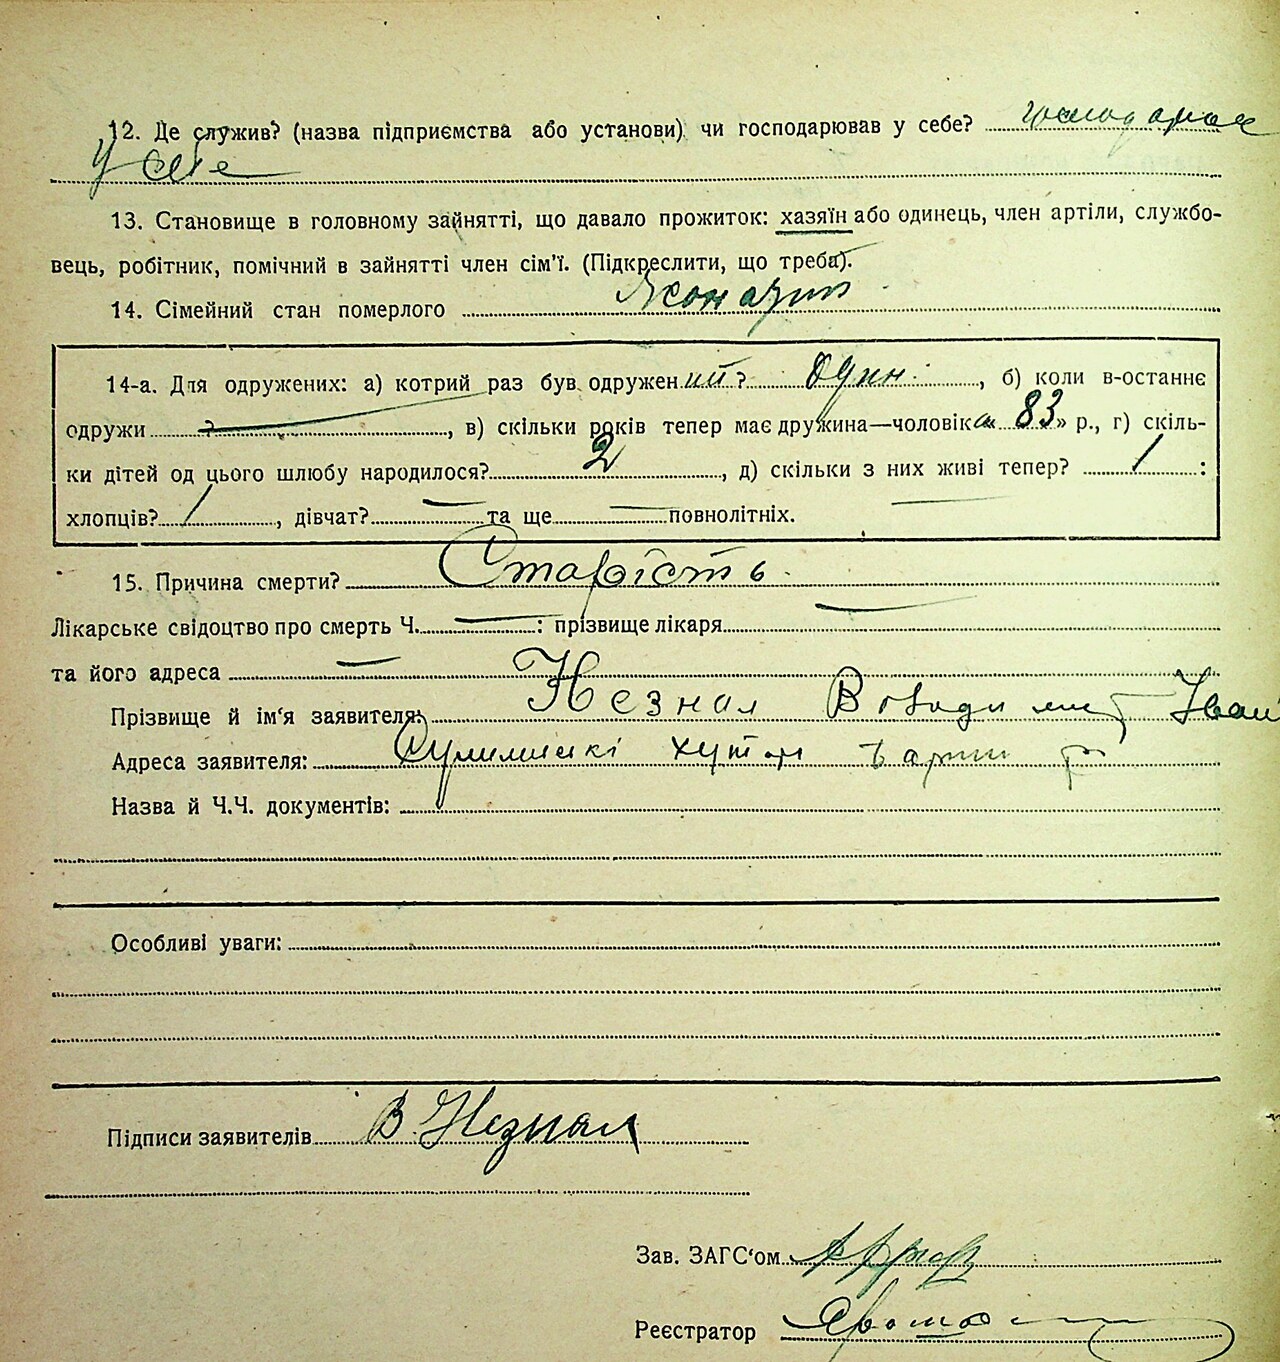 12. Де служив? (назва підприємства або установи) чи господарював у себе?
у себе
13. Становище в головному зайнятті, що давало прожиток: хазяїн або одинець, член артіли, службо-
вець, робітник, помічний в зайнятті член сім'ї. (Підкреслити, що треба).
14. Сімейний стан померлого
14-а. Для одружених: а) котрий раз був одружений? один, б) коли в-останнє
одружи ?, в) скільки років тепер має дружина—чоловіка «83» р., г) скіль-
ки дітей од цього шлюбу народилося? 2, д) скільки з них живі тепер? 1:
хлопців? 1, дівчат? — та ще — повнолітніх. —
15. Причина смерти? Старість
Лікарське свідоцтво про смерть Ч. —: прізвище лікаря —
та його адреса —
Прізвище й ім'я заявителя: Незнал Іван
Адреса заявителя: хутор
Назва й Ч.Ч. документів:
Особливі уваги:
Підписи заявителів В. Незнал
Зав. ЗАГС'ом
Реєстратор